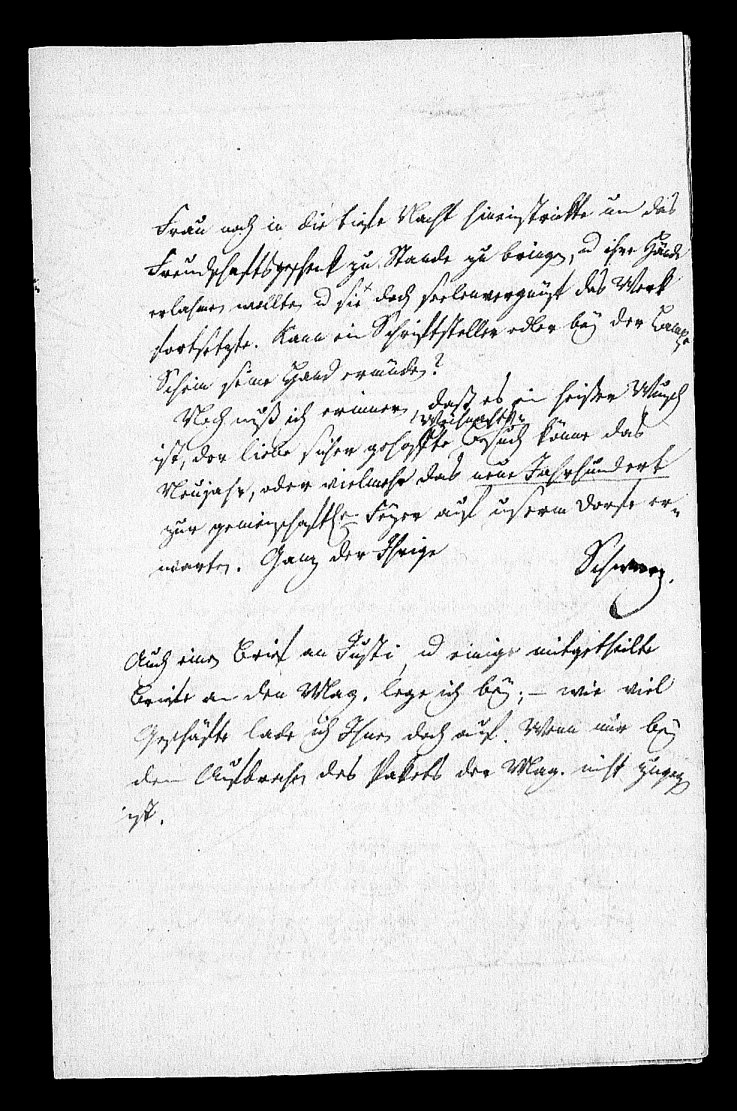 Frau noch in die tiefe Nacht hineinstrikte um das
Freundschaftsgeschenk zu Stande zu bringen, u ihre Hände
erlahmen wollten u sie doch seelenvergnügt das Werk
fortsetzte. Kann ein Schriftsteller edler bey der Lampe
Schein seine Hand ermüden?
Noch muß ich erinnern, daß es ein heißer Wunsch
ist, der liebe sicher gehoffte Weihnachts Besuch könne das
Neujahr, oder vielmehr das neue Jahrhundert
zur gemeinschaftl. Feyer auf unserm Dorfe er-
warten. Ganz der Ihrige
Schwarz.
Auch einen Brief an Justi, u einige mitgetheilte
Briefe an den Mag. lege ich bey; – wie viel
Geschäfte lade ich Ihnen doch auf. Wenn nur bey
dem Aufbrechen des Pakets der Mag. nicht zugegen
ist.